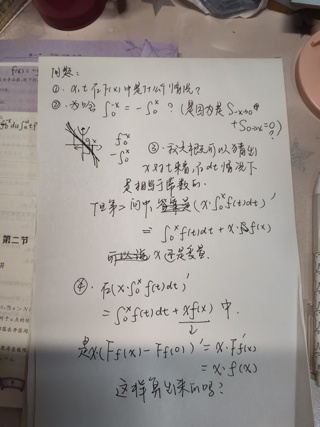 问题:
①. x, t 在下f(x)中是什么情况?
② 为啥 ∫₀⁻ˣ = -∫₀ˣ ? (是因为是 S₋ₓ→₀
+S₀→ₓ=0)
?
∫₀⁻ˣ
-∫₀ˣ
③.
x对t来看,在dt情况下
是相当于常数的.
但第二问中, (x·∫₀ˣf(t)dt)'
= ∫₀ˣf(t)dt + x·f(x)
所以说 x 还是变量.
④. 在(x·∫₀ˣf(t)dt)'
= ∫₀ˣf(t)dt + xf(x) 中.
是x·(Ff(x)-Ff(0))' = x·F'f(x)
= x·f(x)
这样算出来的吗?
第二节